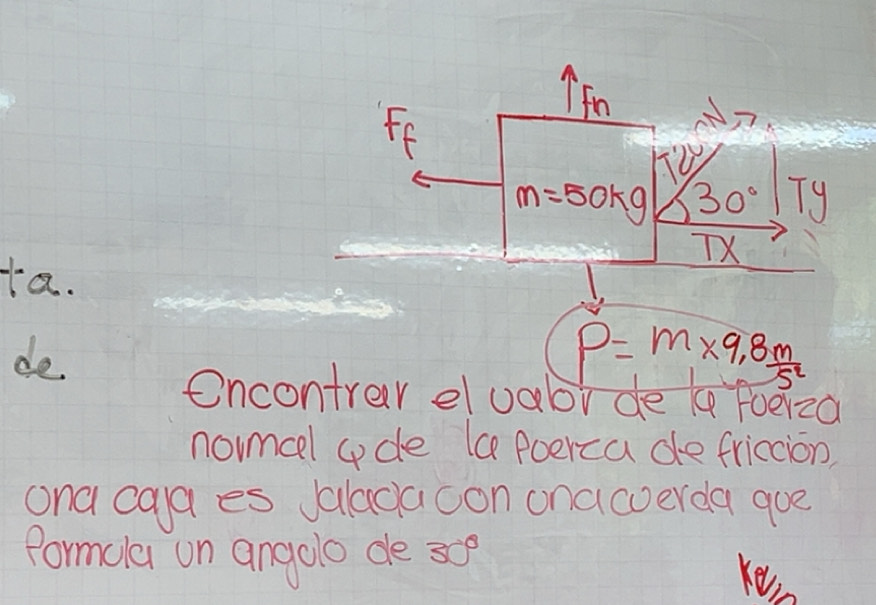 Fn
Ff
T200N
m=50kg
30°
Ty
TX
ta.
P= m x 9,8 m/s²
de
Encontrar el valor de la Fuerza
normal y de la fuerza de fricción,
una caja es Jalada con una cuerda que
formula un angulo de 30°
Kevin